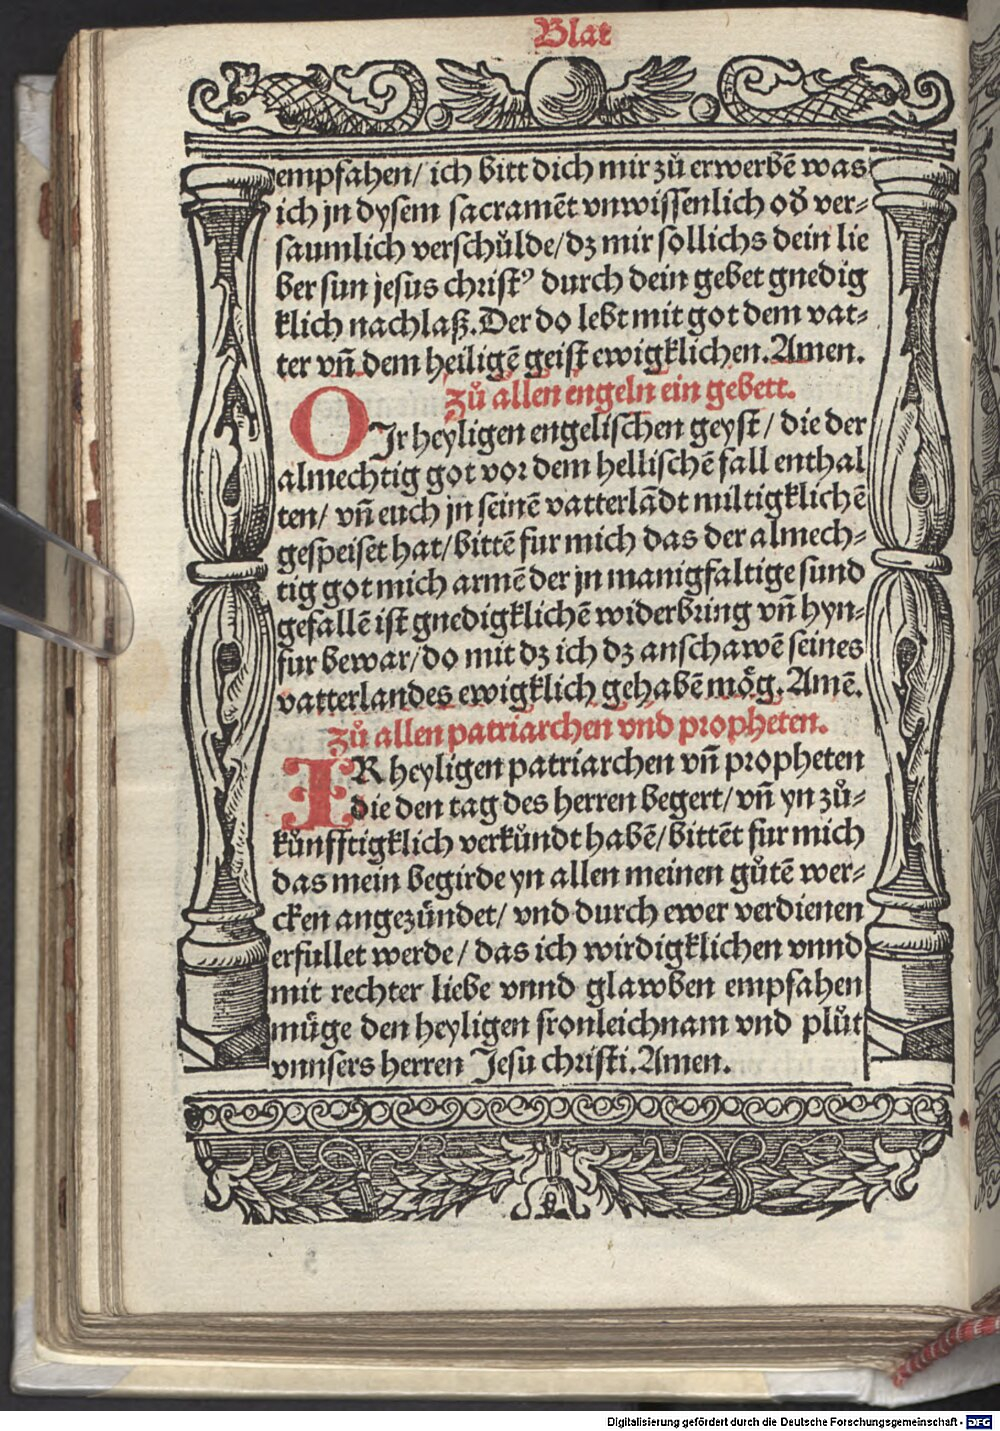 Blat
empfahen/ ich bitt dich mir zů erwerbē was
ich jn dysem sacramēt vnwissenlich oď ver-
saumlich verschůlde/dz mir sollichs dein lie
ber sun jesus christꝰ durch dein gebet gnedig
klich nachlaß. Der do lebt mit got dem vat-
ter vn̄ dem heiligē geist ewigklichen. Amen.
zů allen engeln ein gebett.
O Ir heyligen engelischen geyst/ die der
almechtig got vor dem hellischē fall enthal
ten/ vn̄ euch jn seinē vatterlādt miltigklichē
gespeiset hat/bittē fur mich das der almech-
tig got mich armē der jn manigfaltige sund
gefallē ist gnedigklichē widerbring vn̄ hyn-
fur bewar/do mit dz ich dz anschawē seines
vatterlandes ewigklich gehabē moͤg. Amē.
zů allen patriarchen vnd propheten.
IR heyligen patriarchen vn̄ propheten
die den tag des herren begert/ vn̄ yn zů-
kůnfftigklich verkůndt habē/bittēt fur mich
das mein begirde yn allen meinen gůtē wer-
cken angezuͤndet/ vnd durch ewer verdienen
erfullet werde/ das ich wirdigklichen vnnd
mit rechter liebe vnnd glawben empfahen
muͤge den heyligen fronleichnam vnd plůt
vnnsers herren Jesu christi. Amen.
Digitalisierung gefördert durch die Deutsche Forschungsgemeinschaft - DFG